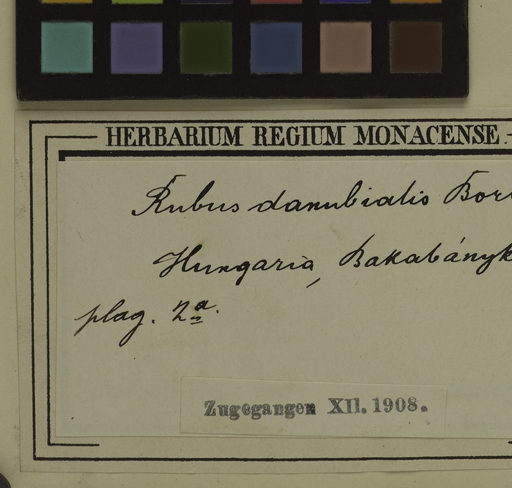 HERBARIUM REGIUM MONACENSE.
Rubus danubialis Bor
Hungaria, Bakabányk
plag. 2a.
Zugegangen XII. 1908.